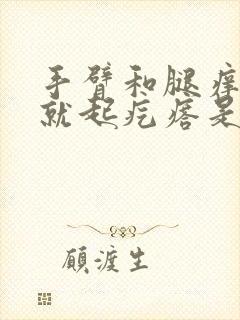 手臂和腿痒
就起疙瘩是
顾渡生